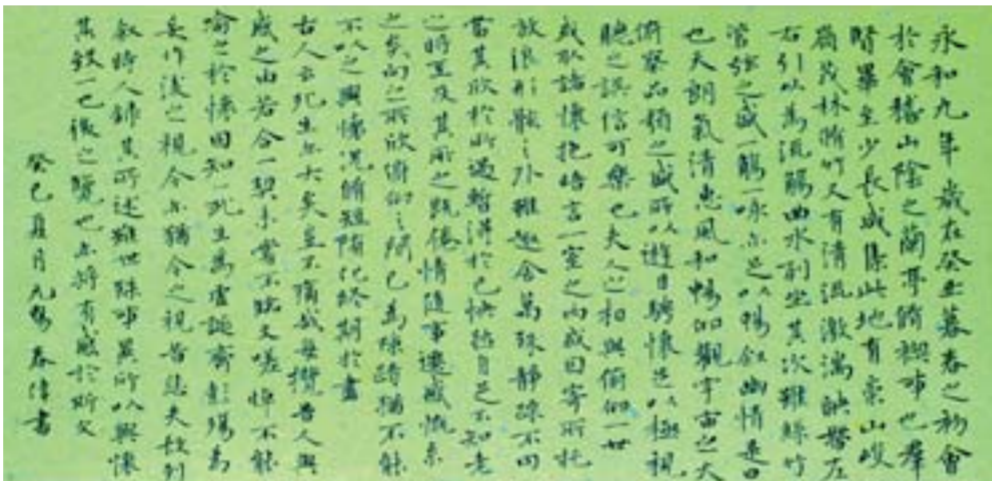 永和九年歲在癸丑暮春之初會
於會稽山陰之蘭亭脩禊事也羣
賢畢至少長咸集此地有崇山峻
嶺茂林脩竹又有清流激湍映帶左
右引以為流觴曲水列坐其次雖無絲竹
管弦之盛一觴一詠亦足以暢敘幽情是日
也天朗氣清惠風和暢仰觀宇宙之大
俯察品類之盛所以遊目騁懷足以極視
聽之娛信可樂也夫人之相與俯仰一世
或取諸懷抱悟言一室之內或因寄所託
放浪形骸之外雖趣舍萬殊靜躁不同
當其欣於所遇暫得於己快然自足不知老
之將至及其所之既倦情隨事遷感慨系
之矣向之所欣俯仰之間已為陳跡猶不能
不以之興懷況脩短隨化終期於盡
古人云死生亦大矣豈不痛哉每攬昔人興
感之由若合一契未嘗不臨文嗟悼不能
喻之於懷固知一死生為虛誕齊彭殤為
妄作後之視今亦猶今之視昔悲夫故列
敘時人錄其所述雖世殊事異所以興懷
其致一也後之覽者亦將有感於斯文
癸巳夏月 春 書